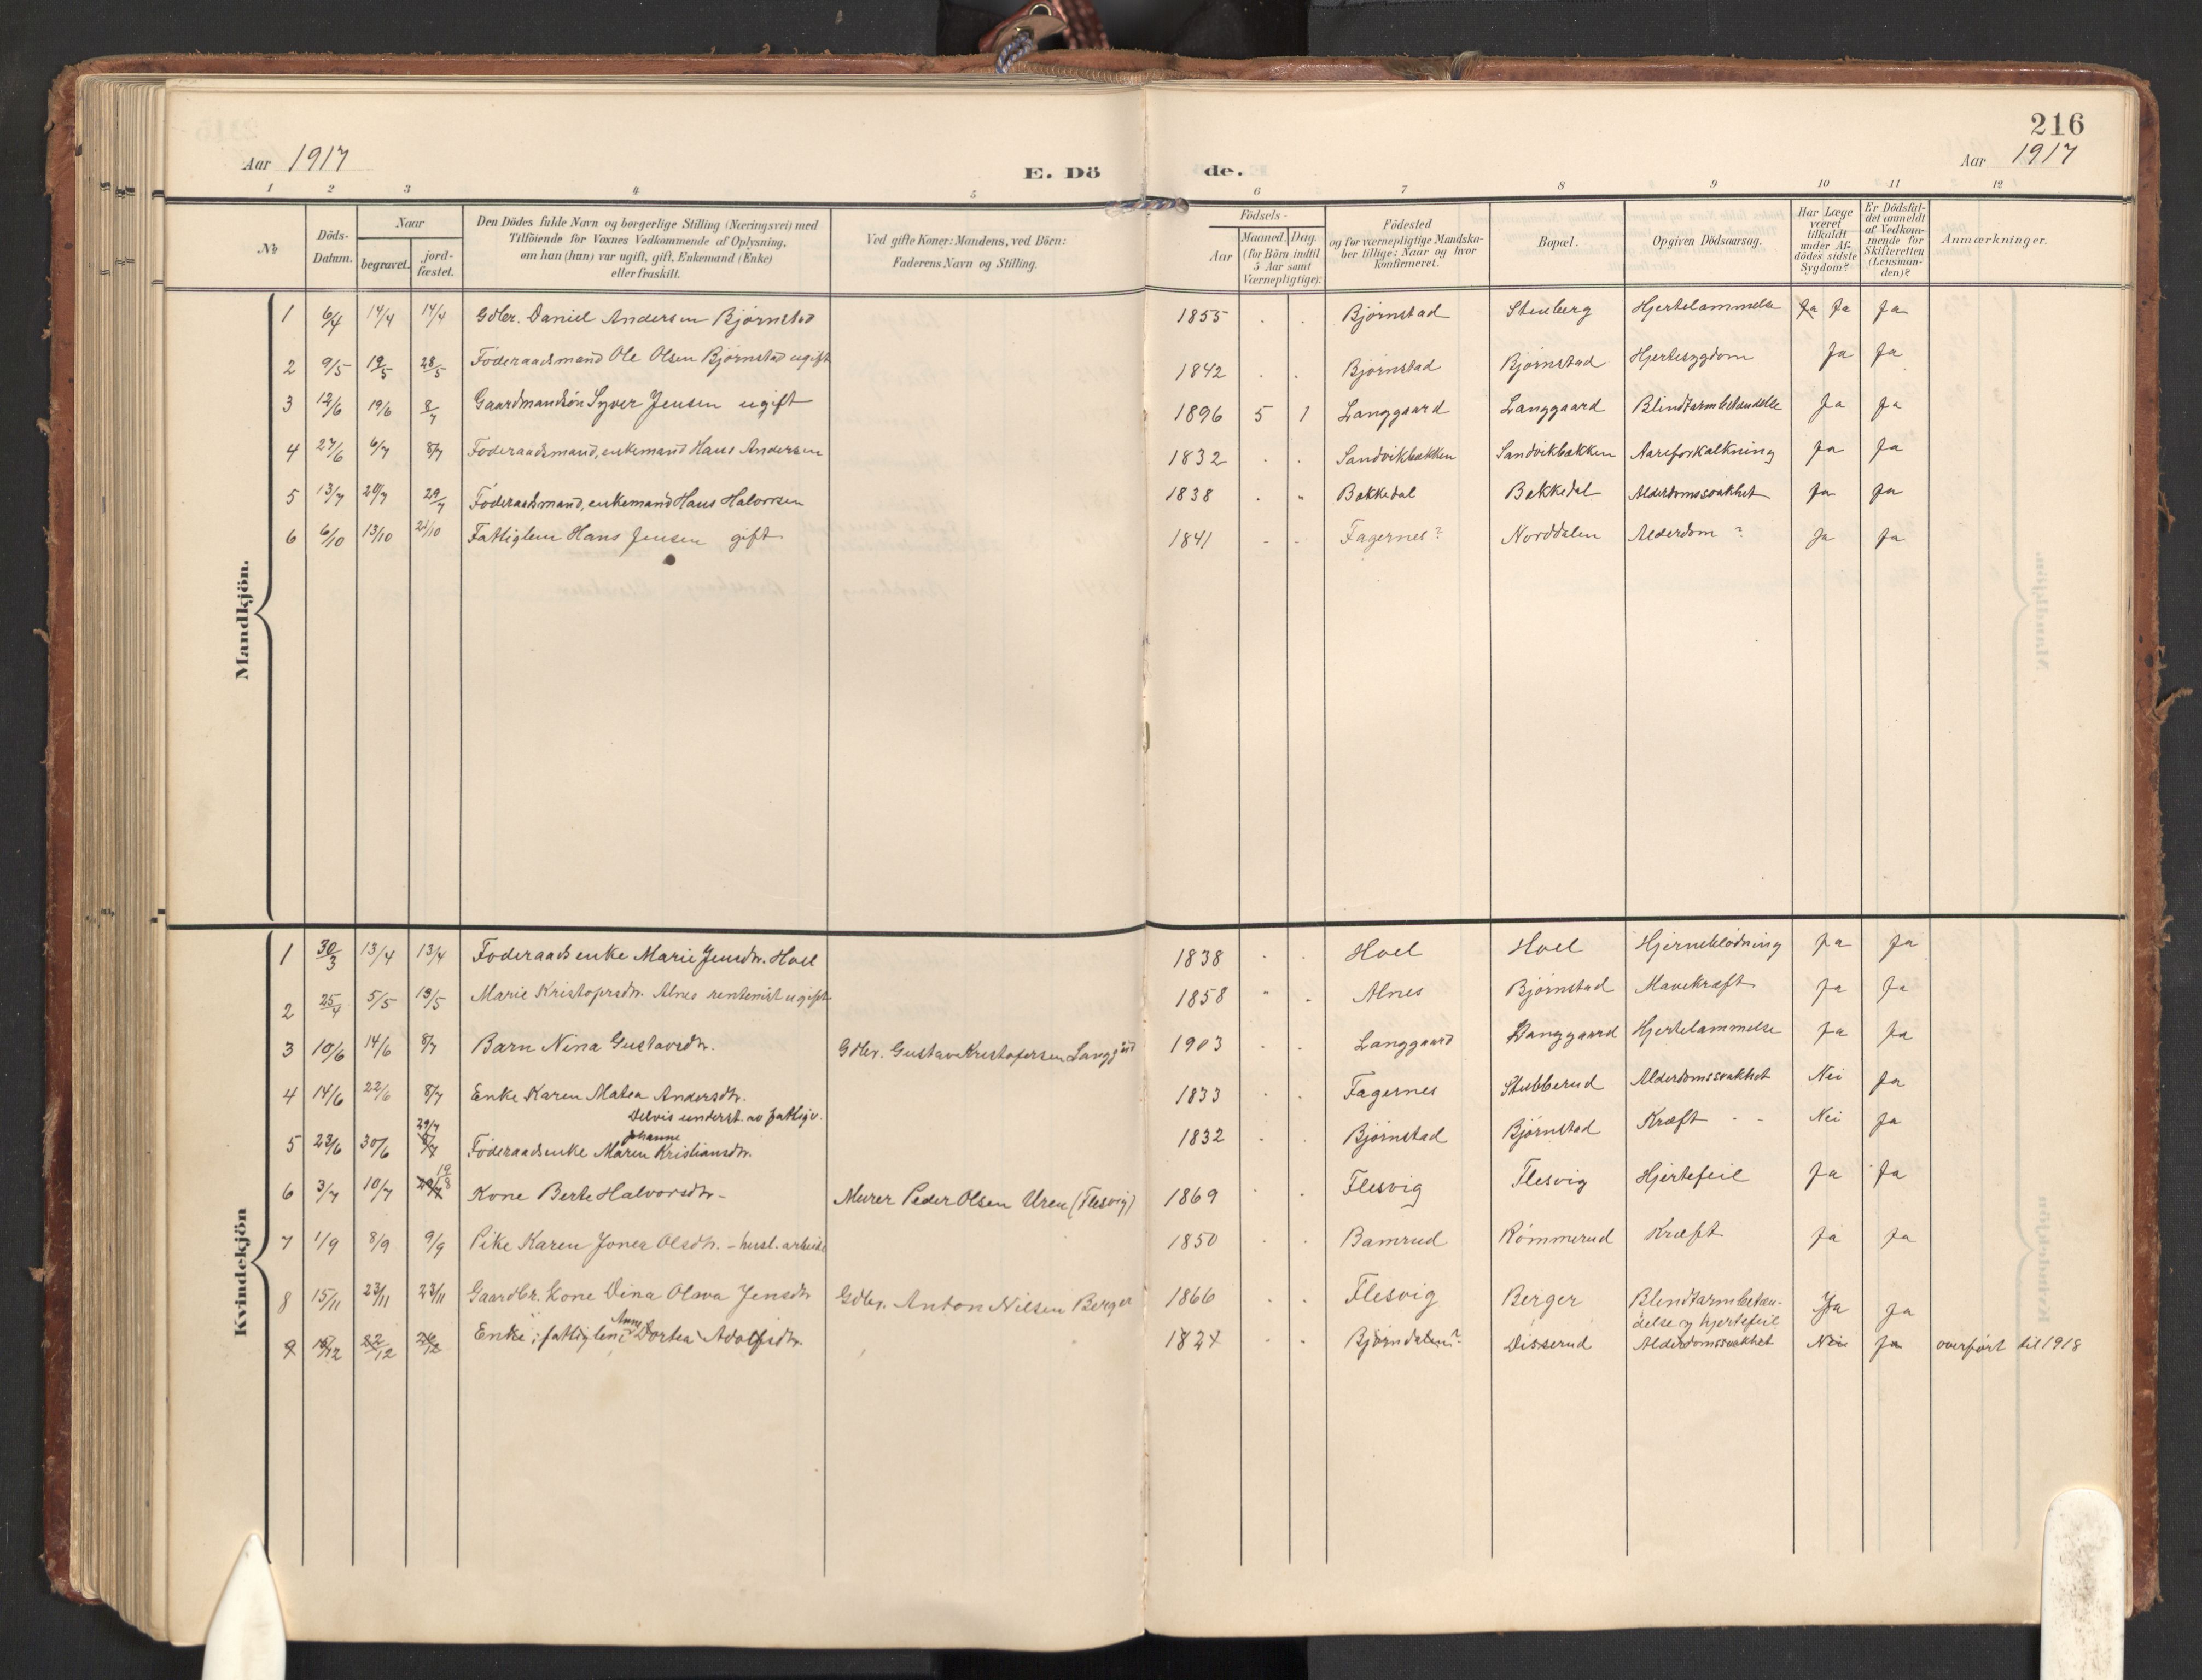 216
Aar 1917
E. Dö
de.
Aar 1917
1 2 3 4 5 6 7 8 9 10 11 12
№
Döds-Datum.
Naar
begravet.
jord-fæstet.
Den Dödes fulde Navn og borgerlige Stilling (Næringsvei) med
Tilföiende for Voxnes Vedkommende af Oplysning,
om han (hun) var ugift, gift, Enkemand (Enke)
eller fraskilt.
Ved gifte Koner: Mandens, ved Börn:
Faderens Navn og Stilling.
Födsels-
Aar
Maaned. Dag.
(for Börn indtil
5 Aar samt
Værnepligtige):
Födested
og for værnepligtige Mandska-
ber tillige: Naar og hvor
konfirmeret.
Bopæl.
Opgiven Dödsaarsag.
Har Læge
været
tilkaldt
under Af-
dödes sidste
Sygdom?
Er Dödsfal-
det anmeldt
af Vedkom-
mende for
Skifteretten
(Lensman-
den)?
Anmærkninger.
Mandkjön.
1 6/4 14/4 14/4 Gdbr. Daniel Andersen Bjørnstad 1855 . . Bjørnstad Stenberg Hjertelammelse Ja Ja Ja
2 9/5 19/5 28/5 Føderaadsmand Ole Olsen Bjørnstad ugift 1842 . . Bjørnstad Bjørnstad Hjertesygdom Ja Ja
3 12/6 19/6 8/7 Gaardmandsøn Syver Jensen ugift 1896 5 1 Langgaard Langgaard Blindtarmbetændelse Ja Ja
4 27/6 6/7 8/7 Føderaadsmand, enkemand Hans Andersen 1832 . . Sandvikbakken Sandvikbakken Aareforkalkning Ja Ja
5 13/7 20/7 29/7 Føderaadsmand, enkemand Hans Halvorsen 1838 . - Bakkedal Bakkedal Alderdomssvakhet Ja Ja
6 6/10 13/10 21/10 Fattiglem Hans Jensen gift 1841 - - Fagernes? Norddalen Alderdom ? Ja Ja
Kvindekjön
1 30/3 13/4 13/4 Føderaadsenke Marie Jensdtr. Hoel 1838 . . Hoel Hoel Hjerneblødning Ja Ja
2 25/4 5/5 19/5 Marie Kristofersdtr. Alnes rentenist ugift 1858 - . Alnes Bjørnstad Mavekræft Ja Ja
3 10/6 14/6 8/7 Barn Nina Gustavsdtr. Gdbr. Gustav Kristofersen Langgård 1903 . . Langgaard Langgaard Hjertelammelse Ja Ja
4 14/6 22/6 8/7 Enke Karen Matea Andersdtr. 1833 . . Fagernes Stubberud Alderdomssvakhet Nei Ja
Delvis underst. av fattigv.
29/7 Johanne
5 23/6 30/6 8/7 Føderaadsenke Maren Kristiansdtr. 1832 . . Bjørnstad Bjørnstad Kræft - - Nei Ja
19/8
6 3/7 10/7 29/7 Kone Berte Halvorsdtr- Murer Peder Olsen Uren (Flesvig) 1869 . . Flesvig Flesvig Hjertefeil Ja Ja
7 1/9 8/9 9/9 Pike Karen Jonea Olsdtr. - husl. arbeide 1850 . . Bamrud Rømmerud Kræft Ja Ja
8 15/11 23/11 23/11 Gaardbr. Kone Dina Olava Jensdtr Gdbr. Anton Nilsen Berger 1866 . . Flesvig Berger Blindtarmbetæn-
delse og hjertefeil Ja Ja
Anne
9 22/12 Enke; fattiglem Dortea Adolfsdtr. - - Bjørndalen? Disserud Alderdomssvakhet Nei Ja overført til 1918